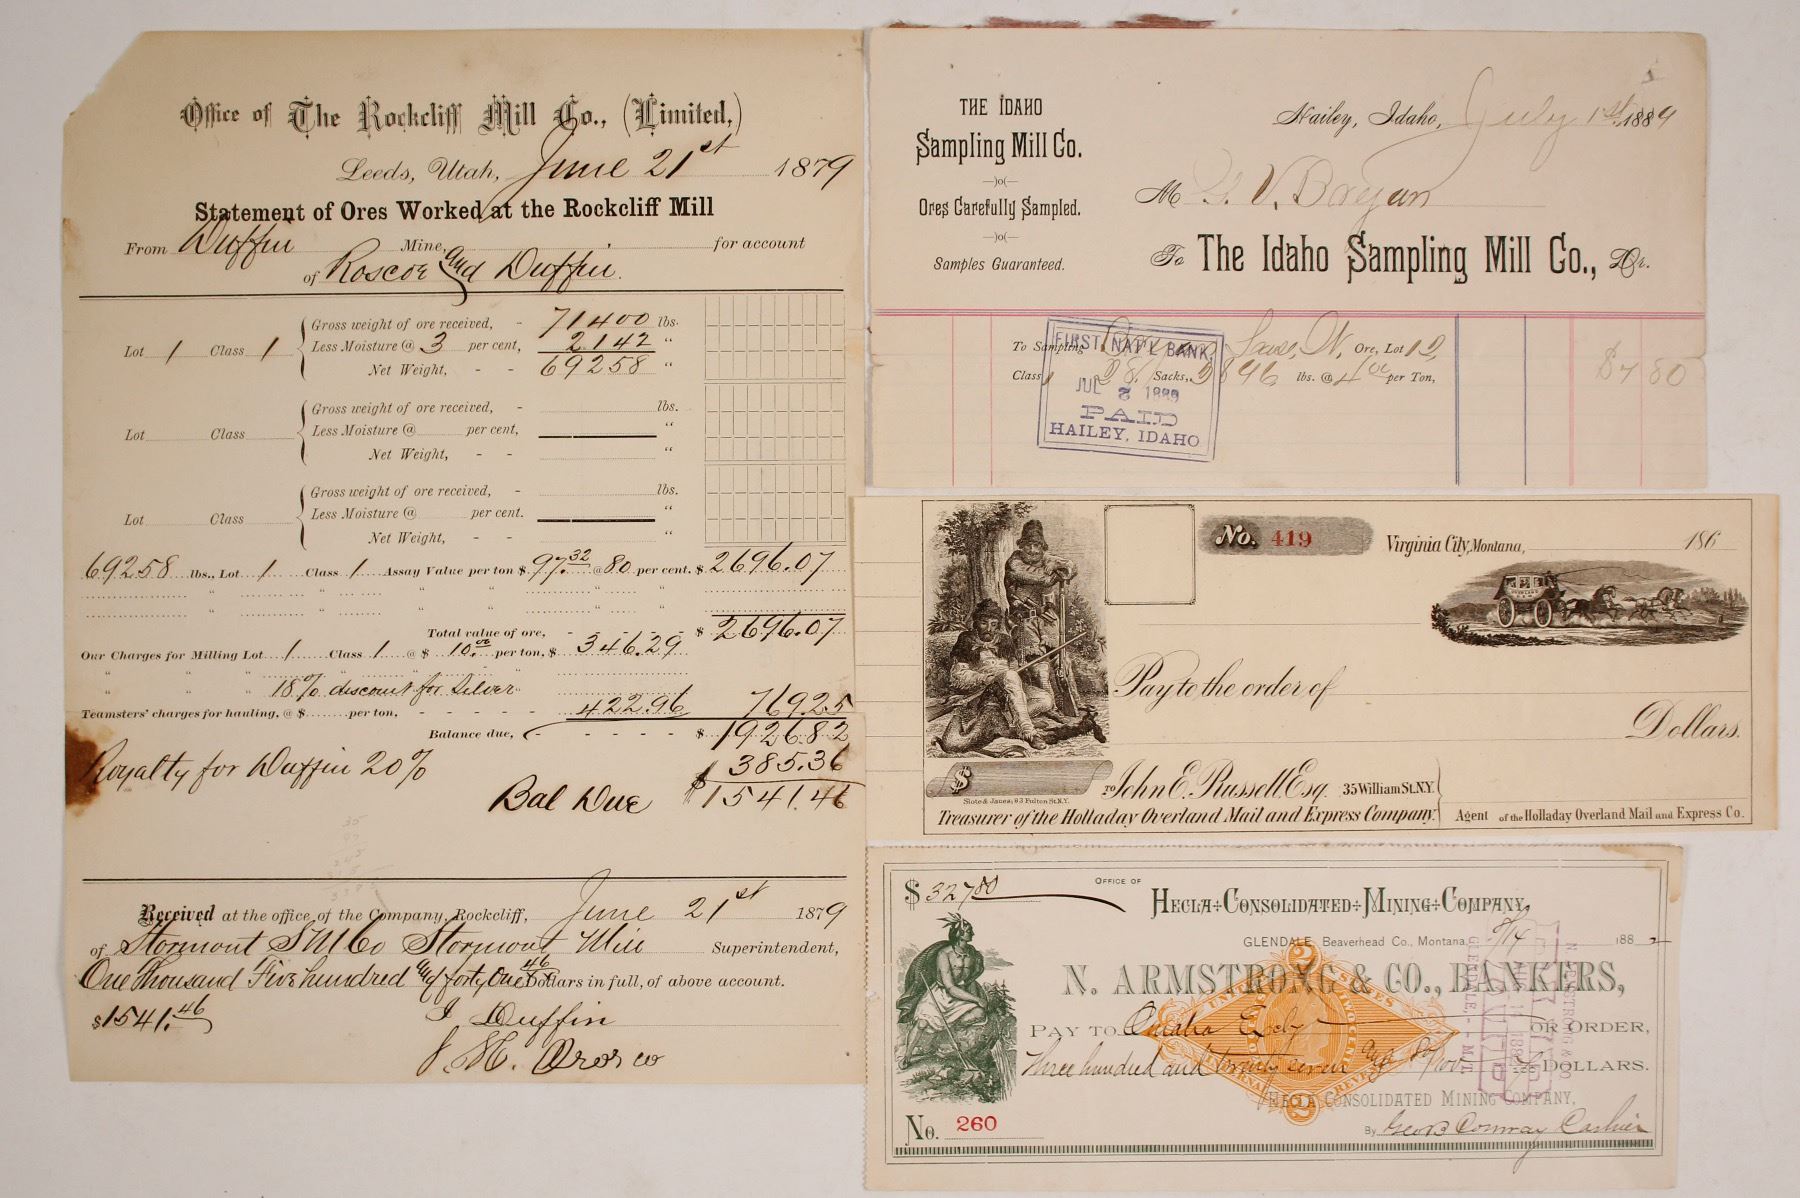 Office of The Rockcliff Mill Co., (Limited,)
Leeds, Utah, June 21st 1879
Statement of Ores Worked at the Rockcliff Mill
From Duffin Mine, for account
of Roscoe and Duffin.
Lot 1 Class 1
Gross weight of ore received, - 71400 lbs.
Less Moisture @ 3 per cent, 2142 "
Net Weight, - - 69258 "
Lot Class
Gross weight of ore received, - lbs.
Less Moisture @ per cent, "
Net Weight, - - "
Lot Class
Gross weight of ore received, - lbs.
Less Moisture @ per cent. "
Net Weight, - - "
69258 lbs., Lot 1 Class 1 Assay Value per ton $ 97.32 @ 80 per cent. $ 2696.07
" " " " " "
" " " " " "
Total value of ore, - - - - $ 2696.07
Our Charges for Milling Lot 1 Class 1 @ $ 10.00 per ton, $ 346.29
" " " 18% discount for Silver
Teamsters' charges for hauling, @ $ per ton, - - - - - 422.96 769.25
Balance due, - - - - $ 1926.82
Royalty for Duffin 20% 385.36
Bal Due $1541.46
Received at the office of the Company, Rockcliff, June 21st 1879
of Stormont S M Co Stormont Mill Superintendent,
One thousand Five hundred and forty One 46/100 Dollars in full, of above account.
$1541.46
J Duffin
THE IDAHO
Sampling Mill Co.
—)o(—
Ores Carefully Sampled.
—)o(—
Samples Guaranteed.
Hailey, Idaho, July 1st 1889
M V. Bayan
To The Idaho Sampling Mill Co., Dr.
To Sampling N. Ore, Lot 12,
Class 1 28 Sacks, 3896 lbs. @ 4.00 per Ton, $7 80
FIRST NAT'L BANK,
JUL 2 1889
PAID
HAILEY, IDAHO
No. 419
Virginia City, Montana, 186
Pay to the order of
Dollars.
$
To John E. Russell, Esq. 35 William St. N.Y.
Slote & Janes, 93 Fulton St. N.Y.
Treasurer of the Holladay Overland Mail and Express Company.
Agent of the Holladay Overland Mail and Express Co.
$ 327.80
OFFICE OF
HECLA CONSOLIDATED MINING COMPANY,
GLENDALE, Beaverhead Co., Montana. 8/14 1882
N. ARMSTRONG & CO., BANKERS,
PAY TO Omaha OR ORDER,
Three hundred and twenty seven and 80/100 DOLLARS.
HECLA CONSOLIDATED MINING COMPANY,
By Geo B Conway Cashier
No. 260